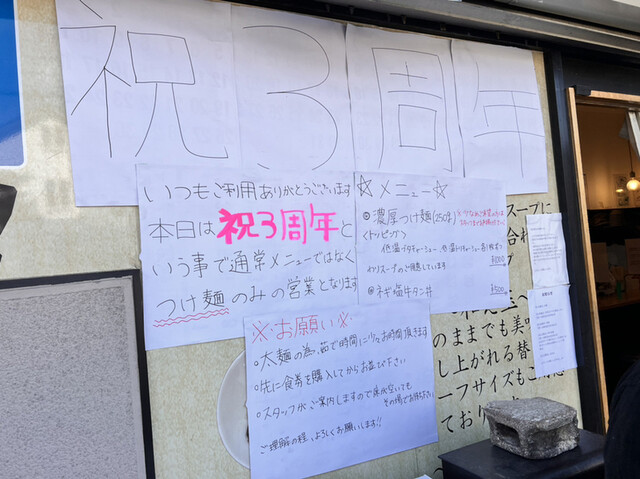 祝3周年
いつもご利用ありがとうございます
本日は祝3周年と
いう事で通常メニューではなく
つけ麺のみの営業となります
☆メニュー☆
◎濃厚つけ麺(250g)
<トッピング>
※スープの用意しています
◎ネギ塩牛タン丼
¥500
※お願い※
○太麺の為、茹で時間に少々お時間頂きます
○先に食券を購入してからお並び下さい
○スタッフがご案内しますので席が空いても
その場でお待ち下さい
ご理解の程、よろしくお願いします!!
スープに
のままでも美味
し上がれる替
ーフサイズもご用意
ており